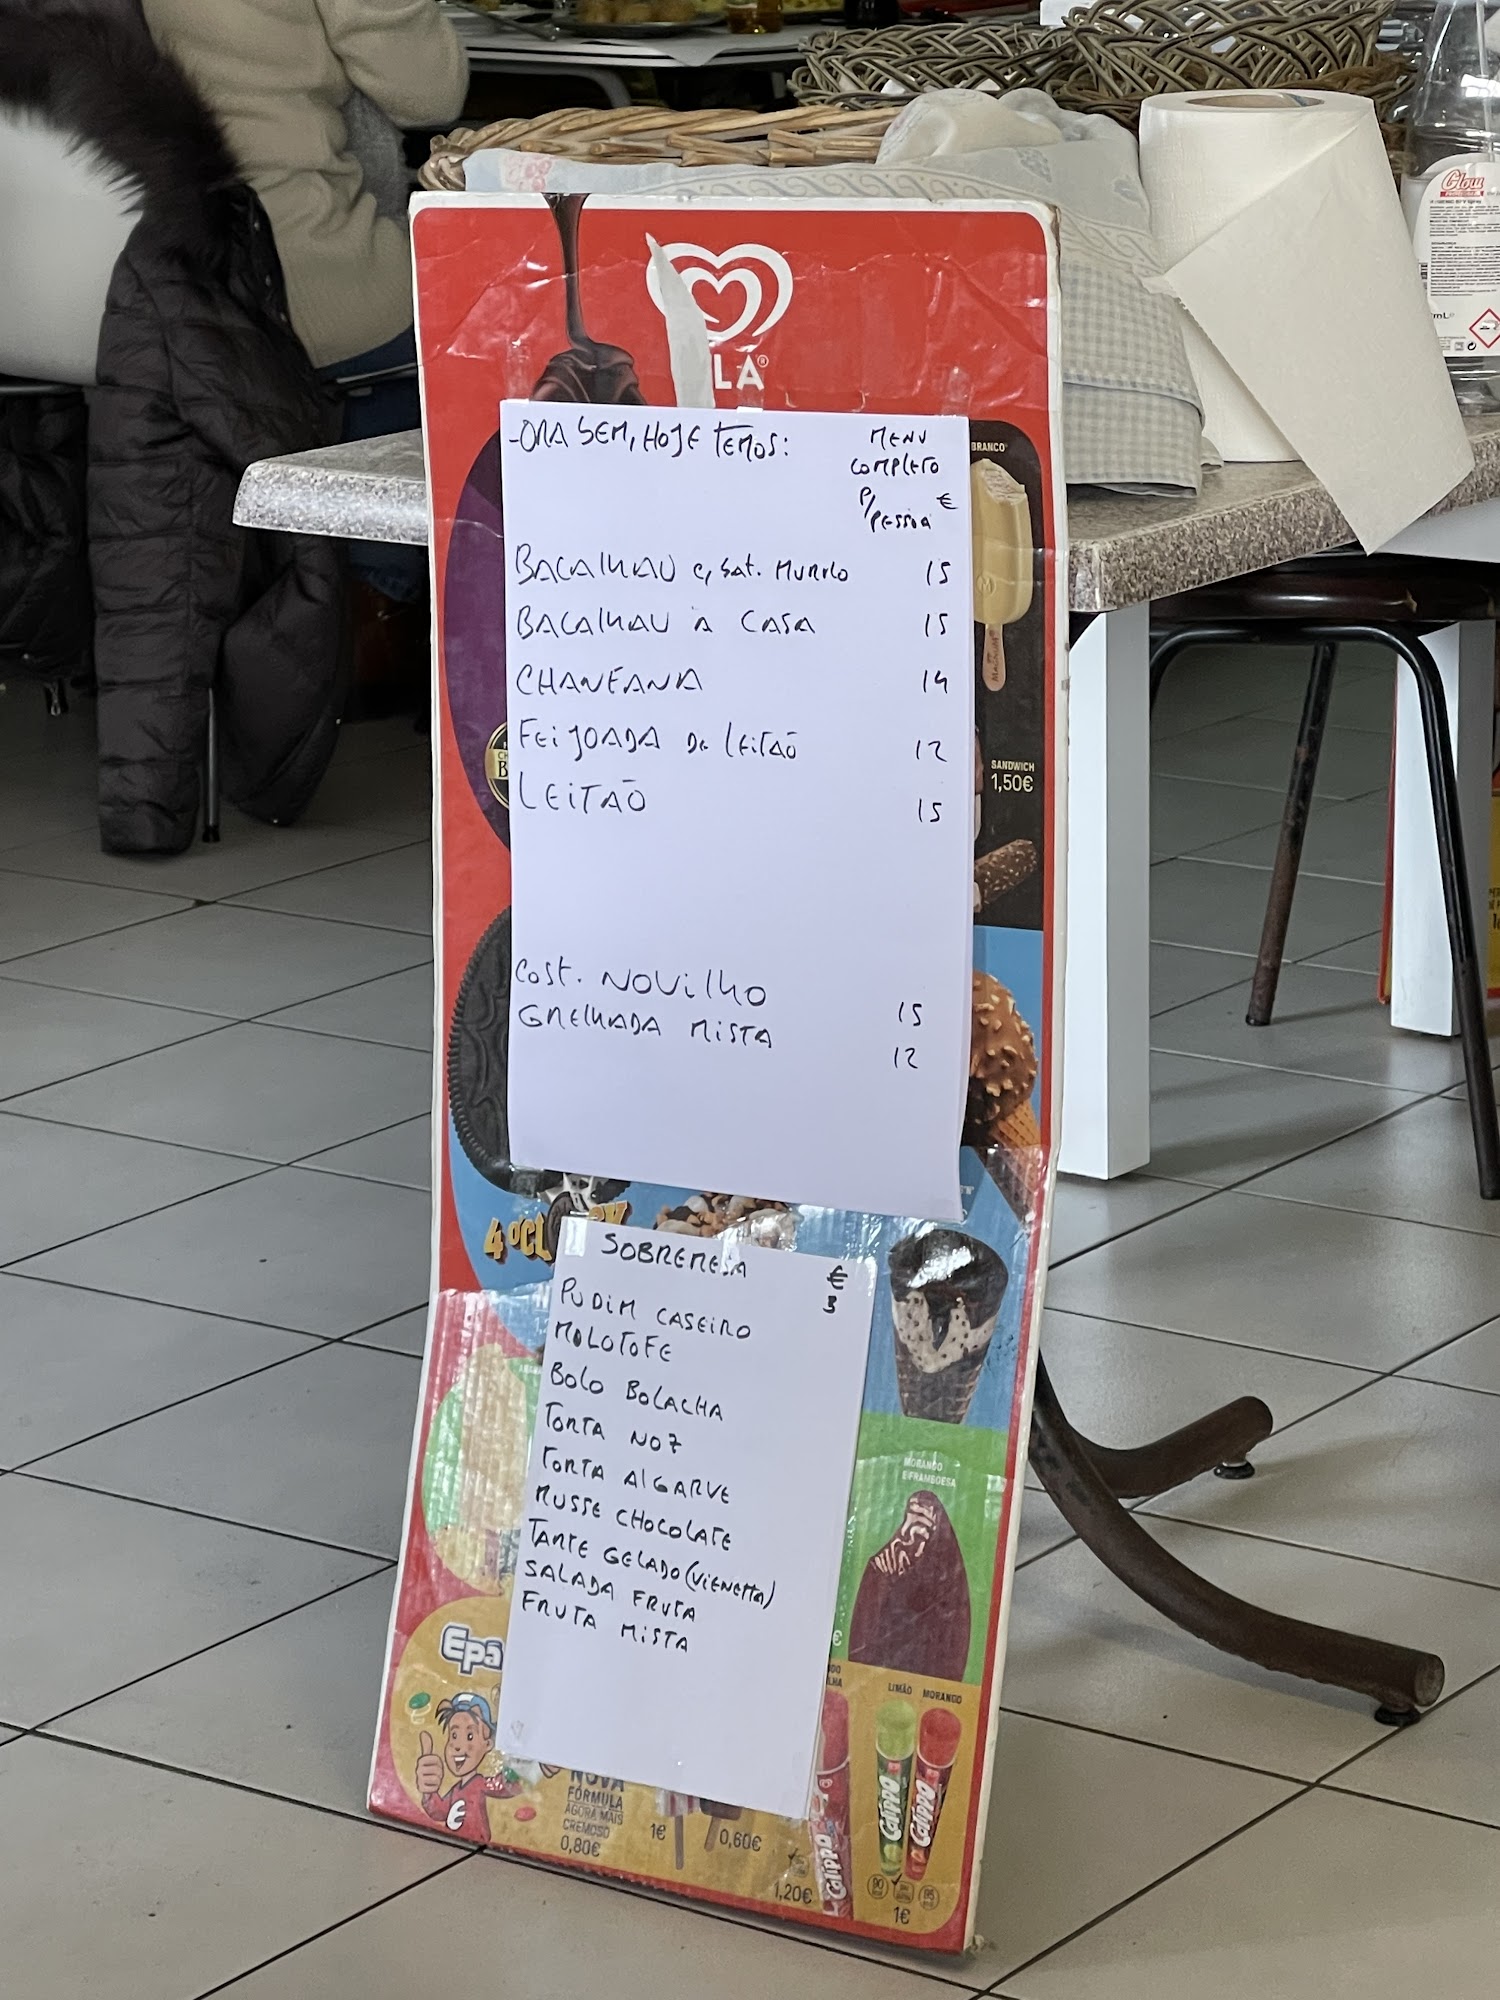 LA®
-ORA BEM, HOJE TEMOS:
MENU
COMPLETO
P/PESSOA €
BACALHAU C/ BAT. MURRO 15
BACALHAU À CASA 15
CHANFANA 14
FEIJOADA DE LEITÃO 12
LEITÃO 15
COST. NOVILHO 15
GRELHADA MISTA 12
BRANCO
SANDWICH
1,50€
SOBREMESA €
PUDIM CASEIRO 3
MOLOTOFE
BOLO BOLACHA
TORTA NOZ
TORTA ALGARVE
MUSSE CHOCOLATE
TARTE GELADO (VIENETTA)
SALADA FRUTA
FRUTA MISTA
MORANGO
E FRAMBOESA
Epá
LIMÃO MORANGO
CALIPPO CALIPPO CALIPPO
NOVA
FÓRMULA
AGORA MAIS
CREMOSO
0,80€
1€
0,60€
1,20€
1€
Glow